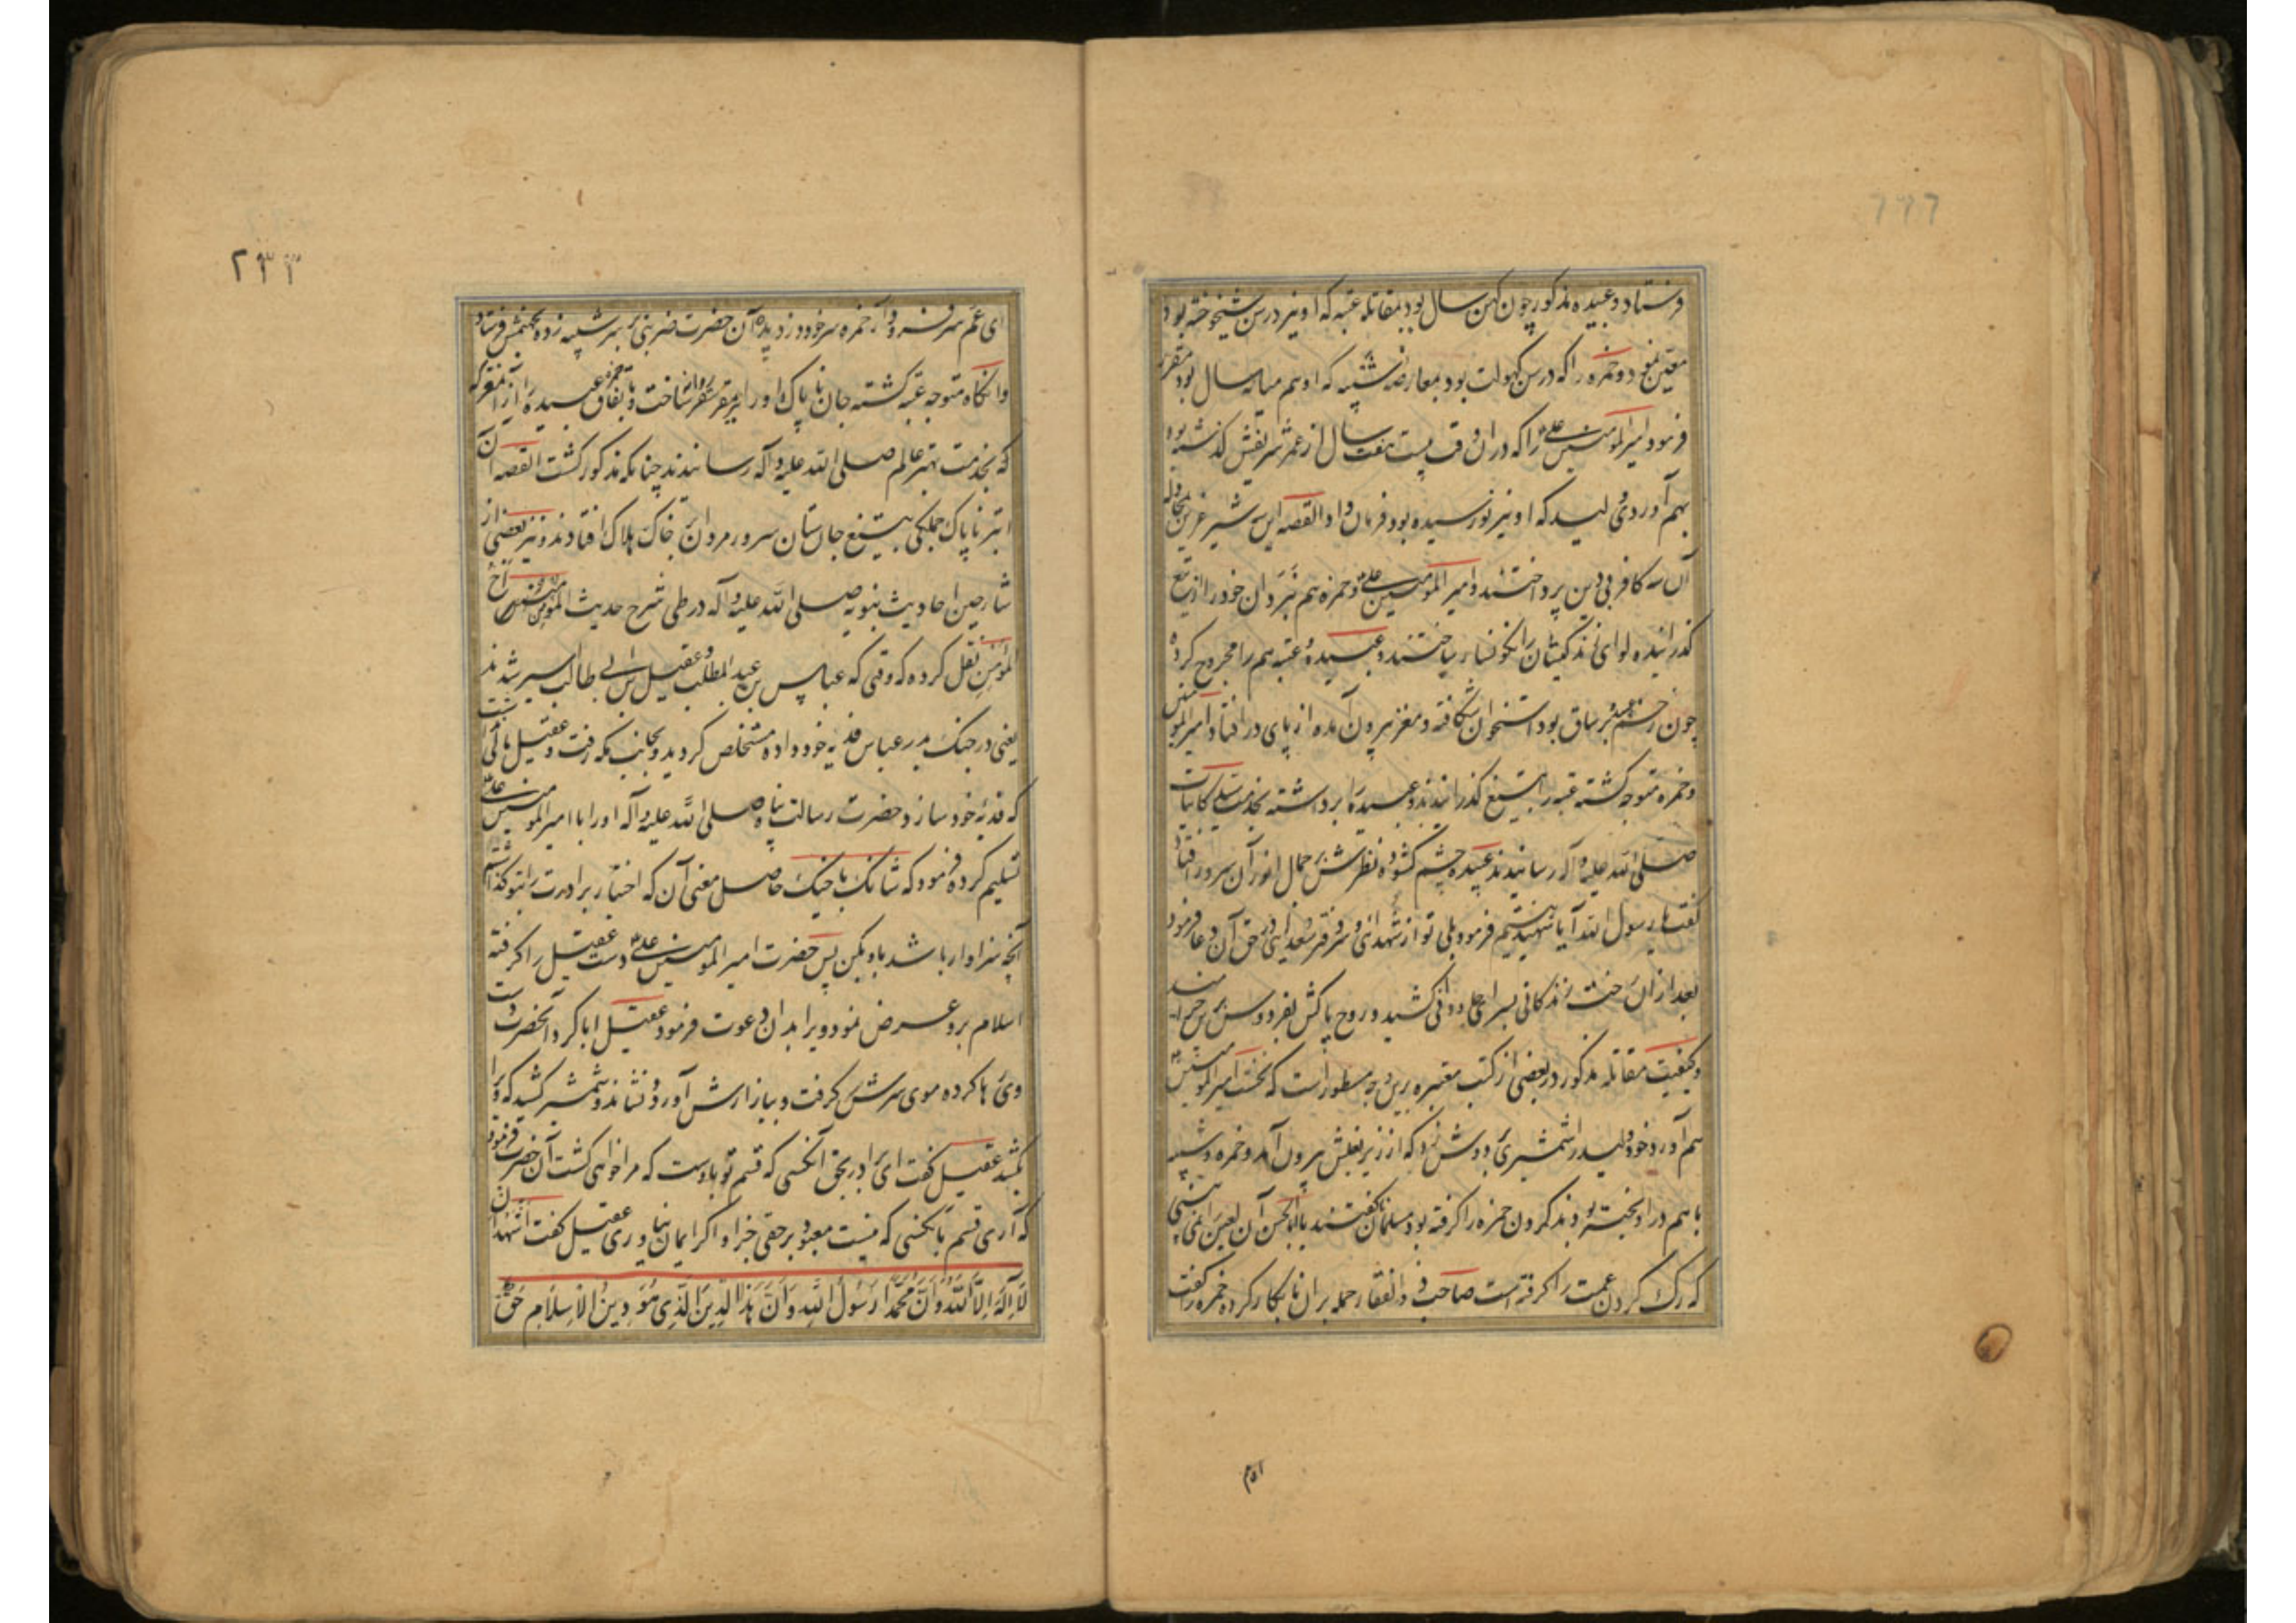 فرستاد و عبیده مذکور چون کهن سال بود بمقاتله عتبه که او نیز در سن شیخوخة بود
معین نمود و حمزه را که در سن کهولت بود بمعارضه شیبه که او هم میانه سال بود مقرر
فرمود امیرالمومنین علی را که در ان وقت بیست هفت سال از عمر شریفش گذشته بود
بهم آوردی ولید که او نیز نورسیده بود فرمان داد القصه این سه شیر عرین بمجادله
آن سه کافر بی دین پرداختند و امیرالمومنین علی و حمزه هم نبردان خود را از تیغ
گذرانیده لوای زندگیشان را نگونسار ساختند و عبیده و عتبه هم را مجروح کرده
چون زخم عبیده بر ساق بود استخوان شکافته و مغز بیرون آمده از پای در افتاد امیرالمومنین
و حمزه متوجه گشته عتبه را بتیغ گذرانیدند و عبیده را برداشته بخدمت کاینات
صلی الله علیه و آله رسانیدند عبیده چشم گشوده نظرش بر جمال انور آن سرور افتاد
گفت یا رسول الله آیا شهید نیستم فرمود بلی تو از شهدائی و در حق آن دعا فرمود
بعد از ان رخت زندگانی بسرای جاودانی کشید و روح پاکش بفردوس برین
و کیفیت مقاتله مذکور در بعضی از کتب معتبره برین وجه مسطور است که نخست امیرالمومنین
هم آورد خود ولید را شمشیری بر دوش زد که از زیر بغلش بیرون آمد و حمزه و شیبه
با هم در اویخته بودند گردن حمزه را گرفته بود مسلمانان گفتند یا اباالحسن آن لعین را نمی بینی
که رگ گردن عمت را گرفته است صاحب ذوالفقار حمله بران نابکار کرده حمزه را گفت
ام ۱۵
۲۳۳
ای عم سر فرود آر حمزه سر خود دزدیده آن حضرت ضربتی بر سر شیبه زده بجهنمش فرستاد
وانگاه متوجه عتبه گشته جان ناپاک او را نیز بمقر سقر روان ساخت و باتفاق حمزه عبیده را از آن معرکه
که بخدمت مهتر عالم صلی الله علیه و آله رسانیدند چنانکه مذکور گشت القصه آن
ابتر ناپاک جملگی بتیغ جان ستان سرور مردان بر خاک هلاک افتادند و نیز بعضی از
شارحین احادیث نبویه صلی الله علیه و آله در طی شرح حدیث المومن مرآة
المومن نقل کرده که وقتی که عباس بن عبدالمطلب و عقیل بن ابی طالب اسیر شدند
یعنی در جنگ بدر عباس فدیه خود داده مستخلص گردید و بجانب مکه رفت و عقیل مالی نداشت
که فدیه خود سازد حضرت رسالت پناه صلی الله علیه و آله او را با امیرالمومنین علی
تسلیم کرده فرمود که شانک باخیک حاصل معنی آن که اختیار برادرت را بتو گذاشتم
آنچه سزاوار باشد باو بکن پس حضرت امیرالمومنین علی دست عقیل را گرفته
اسلام برو عرض نمود و یرا بدان دعوت فرمود عقیل ابا کرد آنحضرت دست
وی رها کرده موی سرش گرفت و ببازارش آورد و نشاند و شمشیر کشید که ویرا
بکشد عقیل گفت ای برادر بحق آنکسی که قسم تو باوست که مرا خواهی کشت آن حضرت فرمود
که آری قسم بآنکسی که نیست معبود بر حقی جز او اگر ایمان نیاوری عقیل گفت اشهد ان
لا اله الا الله و ان محمدا رسول الله و ان هذا الدین الذی هو دین الاسلام حق